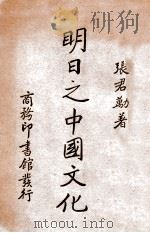 張君勱著
明日之中國文化
商務印書館發行
www.ertongbook.com